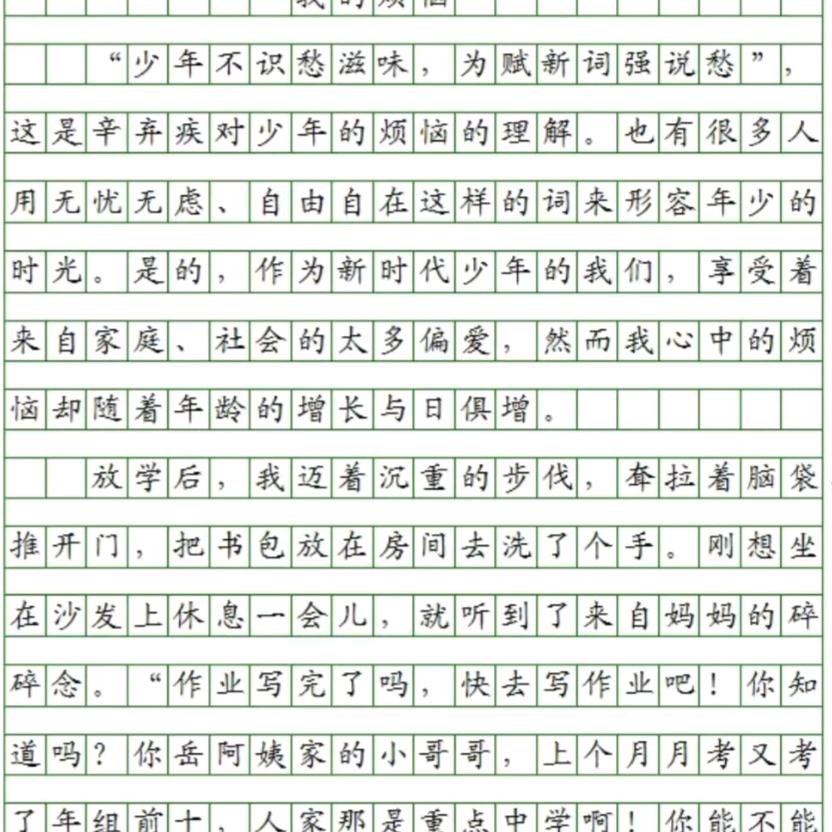 我的烦恼
“少年不识愁滋味，为赋新词强说愁”，
这是辛弃疾对少年的烦恼的理解。也有很多人
用无忧无虑、自由自在这样的词来形容年少的
时光。是的，作为新时代少年的我们，享受着
来自家庭、社会的太多偏爱，然而我心中的烦
恼却随着年龄的增长与日俱增。
放学后，我迈着沉重的步伐，耷拉着脑袋
推开门，把书包放在房间去洗了个手。刚想坐
在沙发上休息一会儿，就听到了来自妈妈的碎
碎念。“作业写完了吗，快去写作业吧！你知
道吗？你岳阿姨家的小哥哥，上个月月考又考
了年组前十，人家那是重点中学啊！你能不能